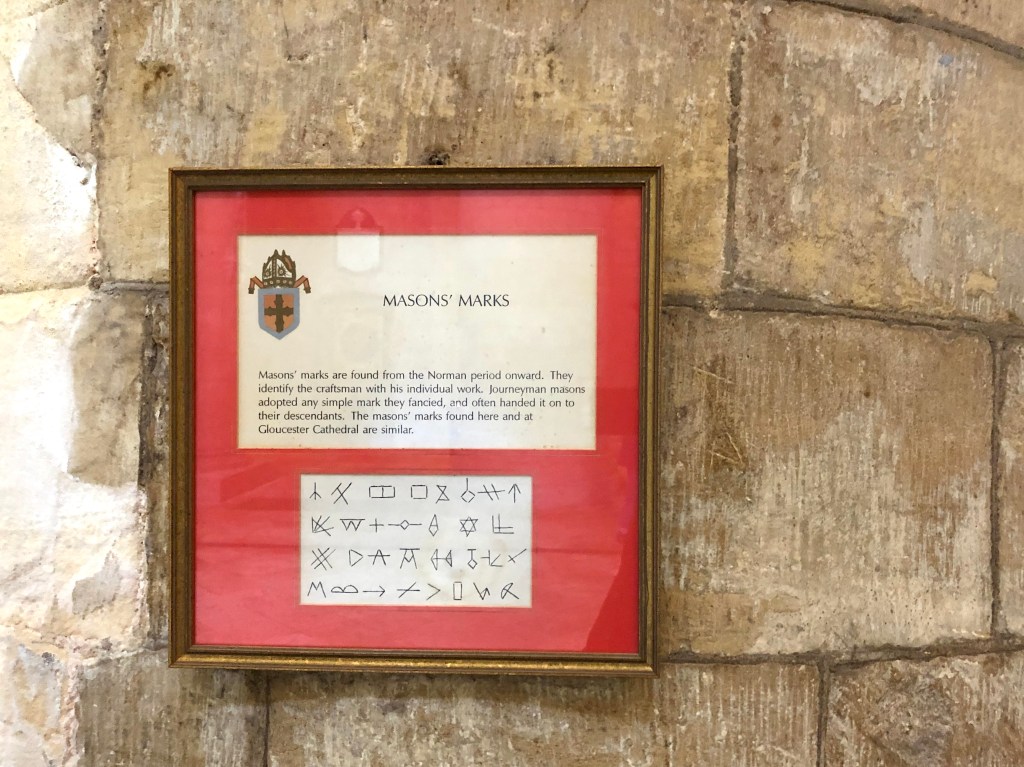 MASONS' MARKS
Masons' marks are found from the Norman period onward. They
identify the craftsman with his individual work. Journeyman masons
adopted any simple mark they fancied, and often handed it on to
their descendants. The masons' marks found here and at
Gloucester Cathedral are similar.